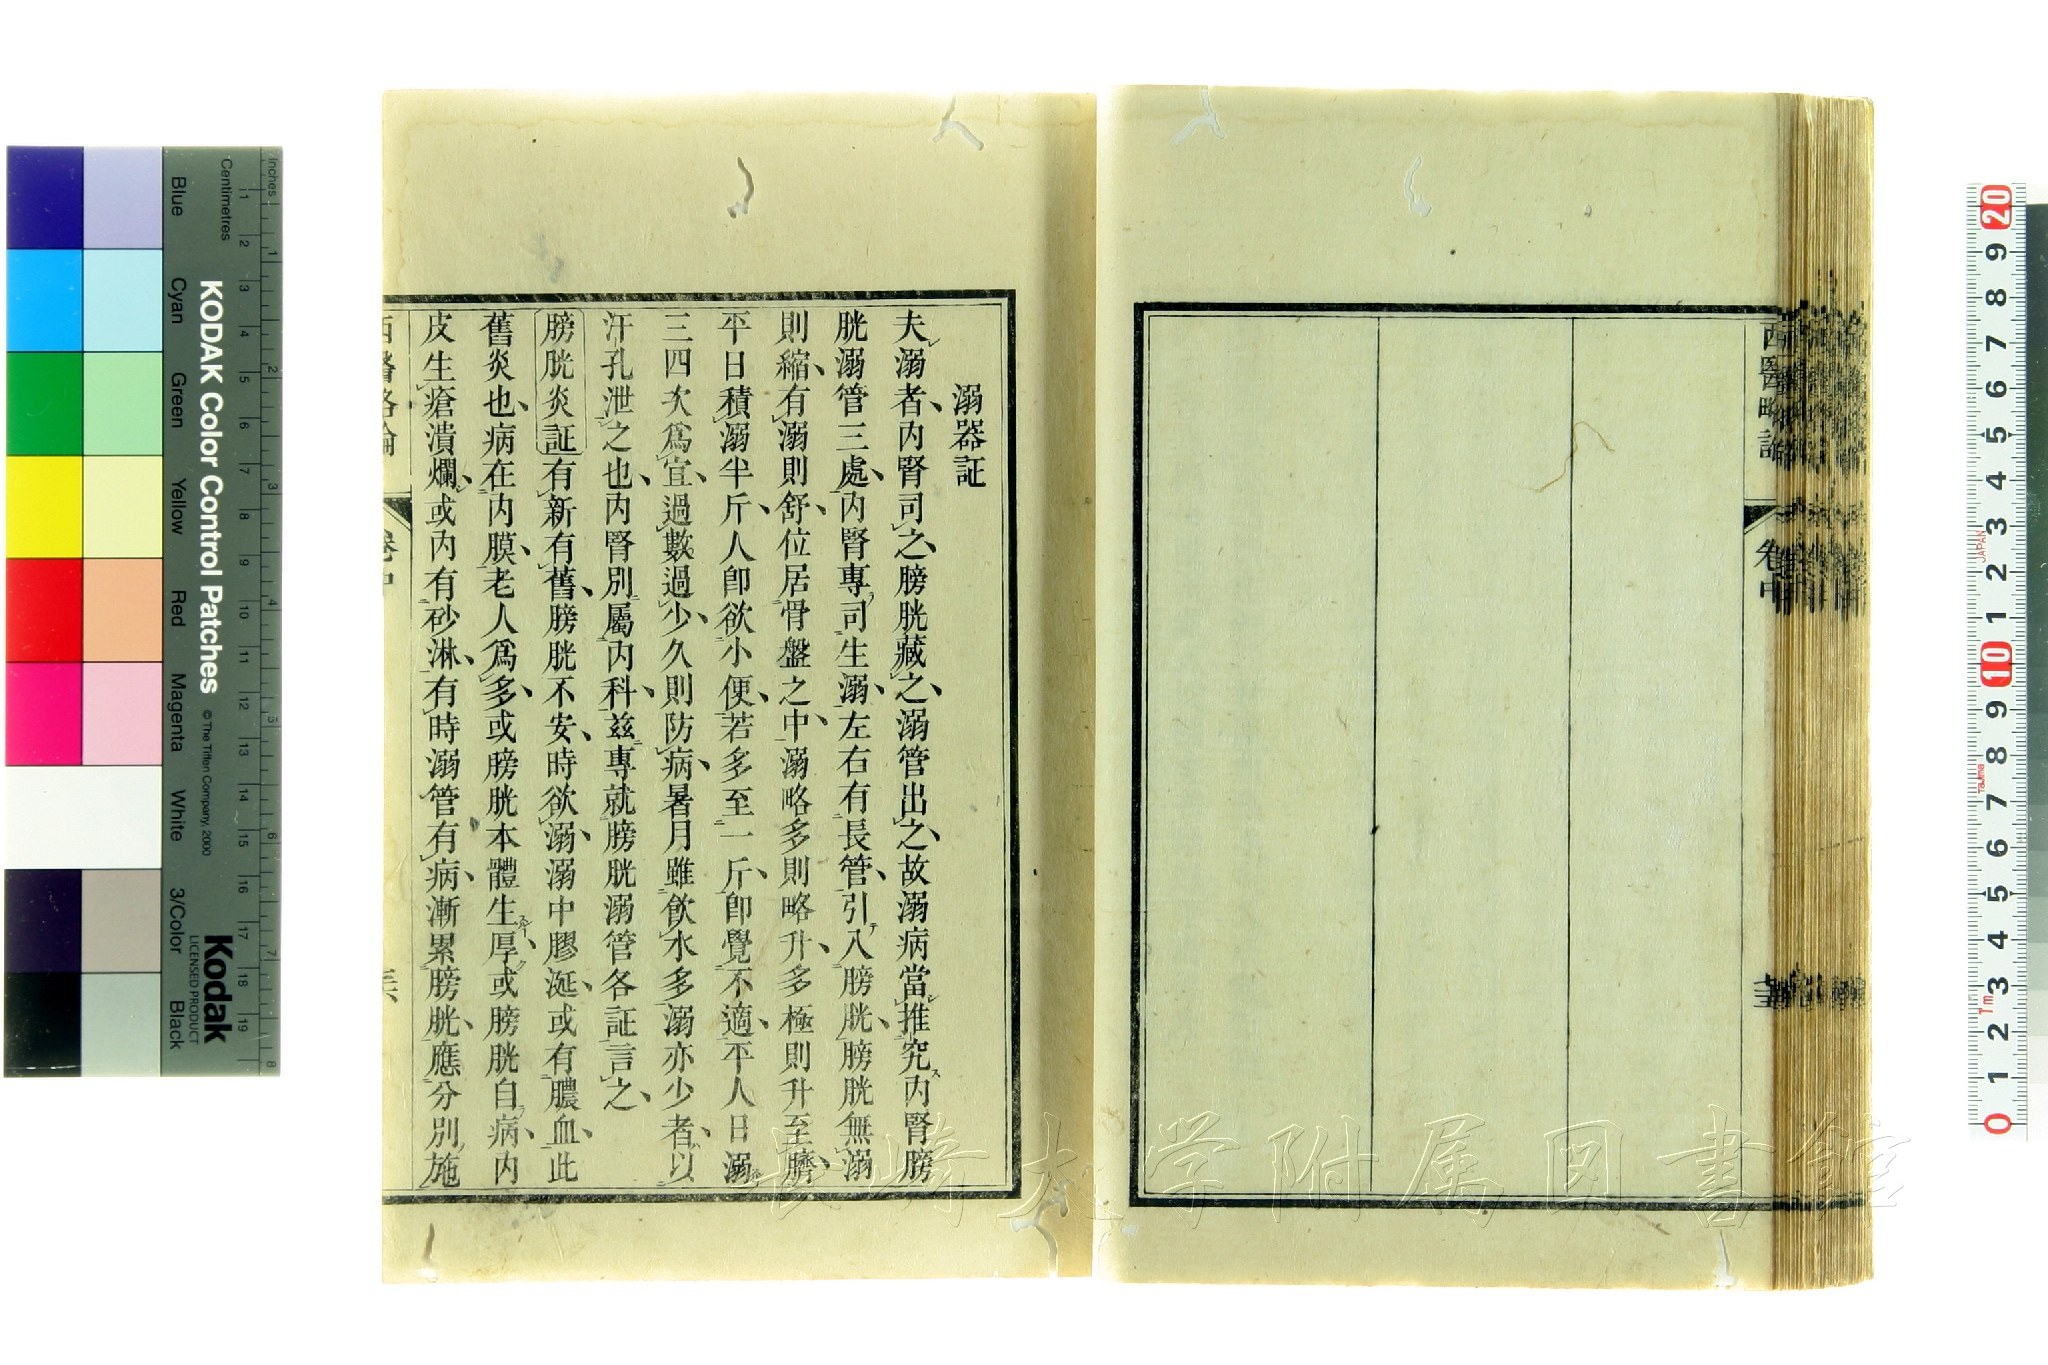 西醫略論
卷中
溺器証
夫溺者、內腎司之、膀胱藏之、溺管出之、故溺病當推究內腎膀
胱溺管三處、內腎專司生溺、左右有長管、引入膀胱、膀胱無溺
則縮、有溺則舒、位居骨盤之中、溺略多則略升、多極則升至臍、
平日積溺半斤、人卽欲小便、若多至一斤、卽覺不適、平人日溺
三四次爲宜、過數過少、久則防病、暑月雖飮水多溺亦少者、以
汗孔泄之也、內腎別屬內科、茲專就膀胱溺管各証言之、
膀胱炎証有新有舊、膀胱不安、時欲溺、溺中膠涎、或有膿血、此
舊炎也、病在內膜、老人爲多、或膀胱本體生厚、或膀胱自病、內
皮生瘡潰爛、或內有砂淋、有時溺管有病、漸累膀胱、應分別施
西醫略論
卷中
長崎大学附属図書館
KODAK Color Control Patches
© The Tiffen Company, 2000
Kodak
LICENSED PRODUCT
Blue Cyan Green Yellow Red Magenta White 3/Color Black
Inches 1 2 3 4 5 6 7 8
Centimetres 1 2 3 4 5 6 7 8 9 10 11 12 13 14 15 16 17 18 19
20 9 8 7 6 5 4 3 2 1 10 9 8 7 6 5 4 3 2 1 0
JAPAN
Tajima